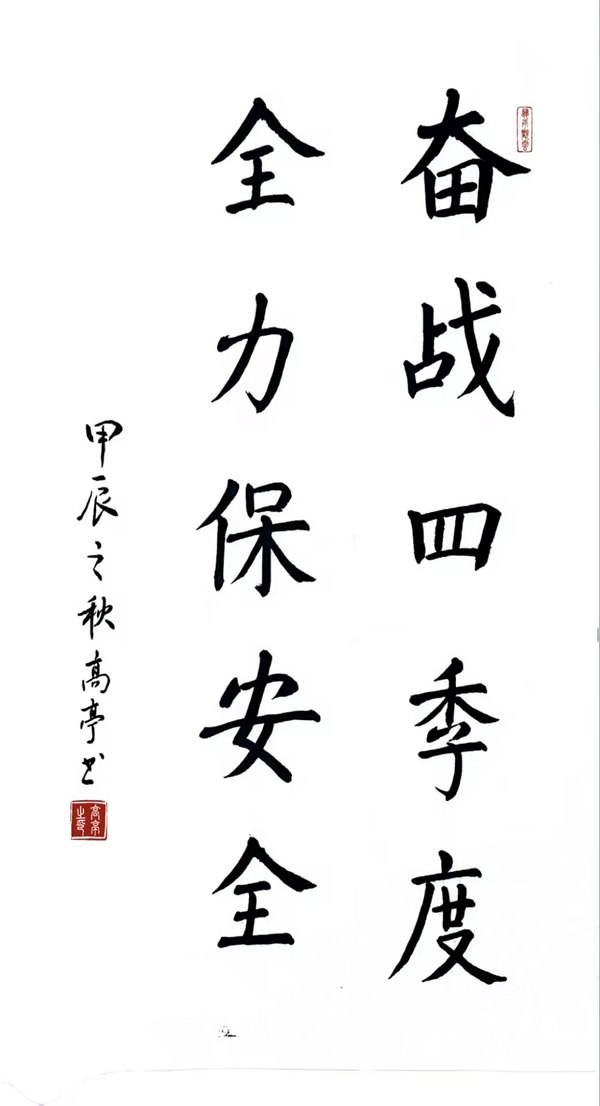 奋战四季度
全力保安全
甲辰之秋高亭书
高亭之印